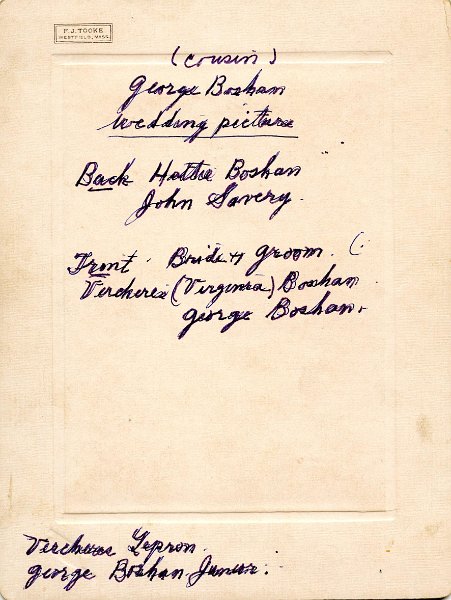 F.J. TOOKE
WESTFIELD, MASS.
(cousin)
George Boshan
Wedding picture
Back Hattie Boshan
John Savery.
Front. Bride + Groom. (
(Virginia) Boshan
George Boshan.
George Boshan Junior.